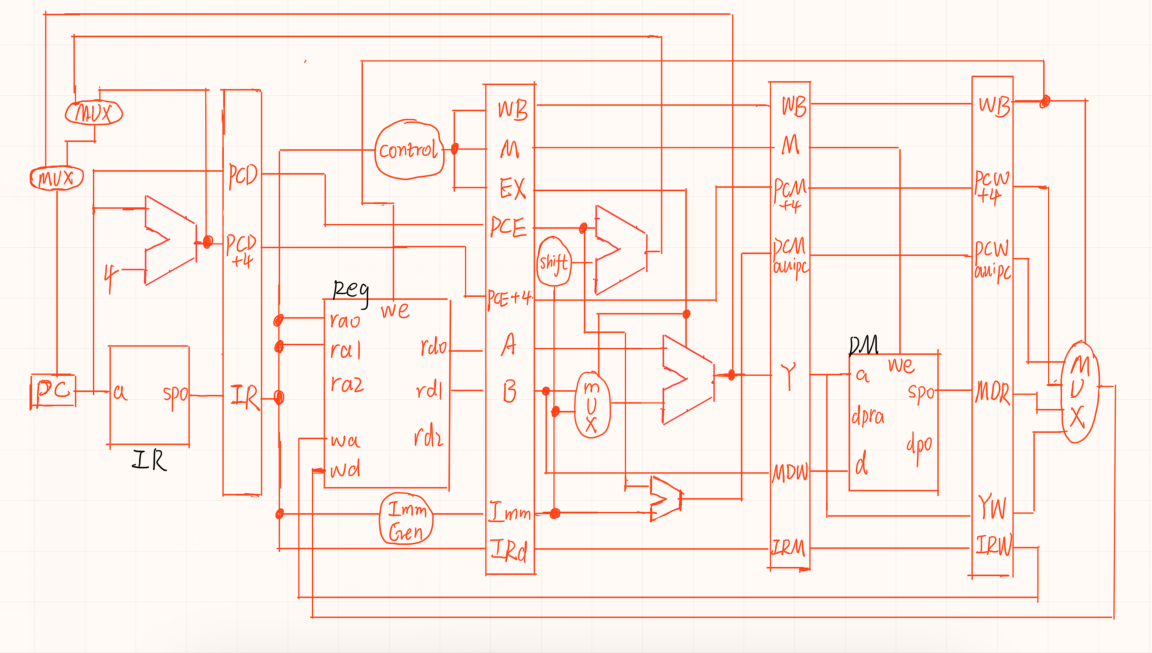 MUX
MUX
4
PC
a
spo
IR
PCD
PCD
+4
IR
control
Reg
we
ra0
ra1
ra2
wa
wd
rd0
rd1
rd2
Imm
Gen
WB
M
EX
PCE
PCE+4
A
B
Imm
IRd
shift
MUX
WB
M
PCM
+4
PCM
auipc
Y
MDW
IRM
DM
we
a
dpra
d
spo
dpo
WB
PCW
+4
PCW
auipc
MDR
YW
IRW
MUX